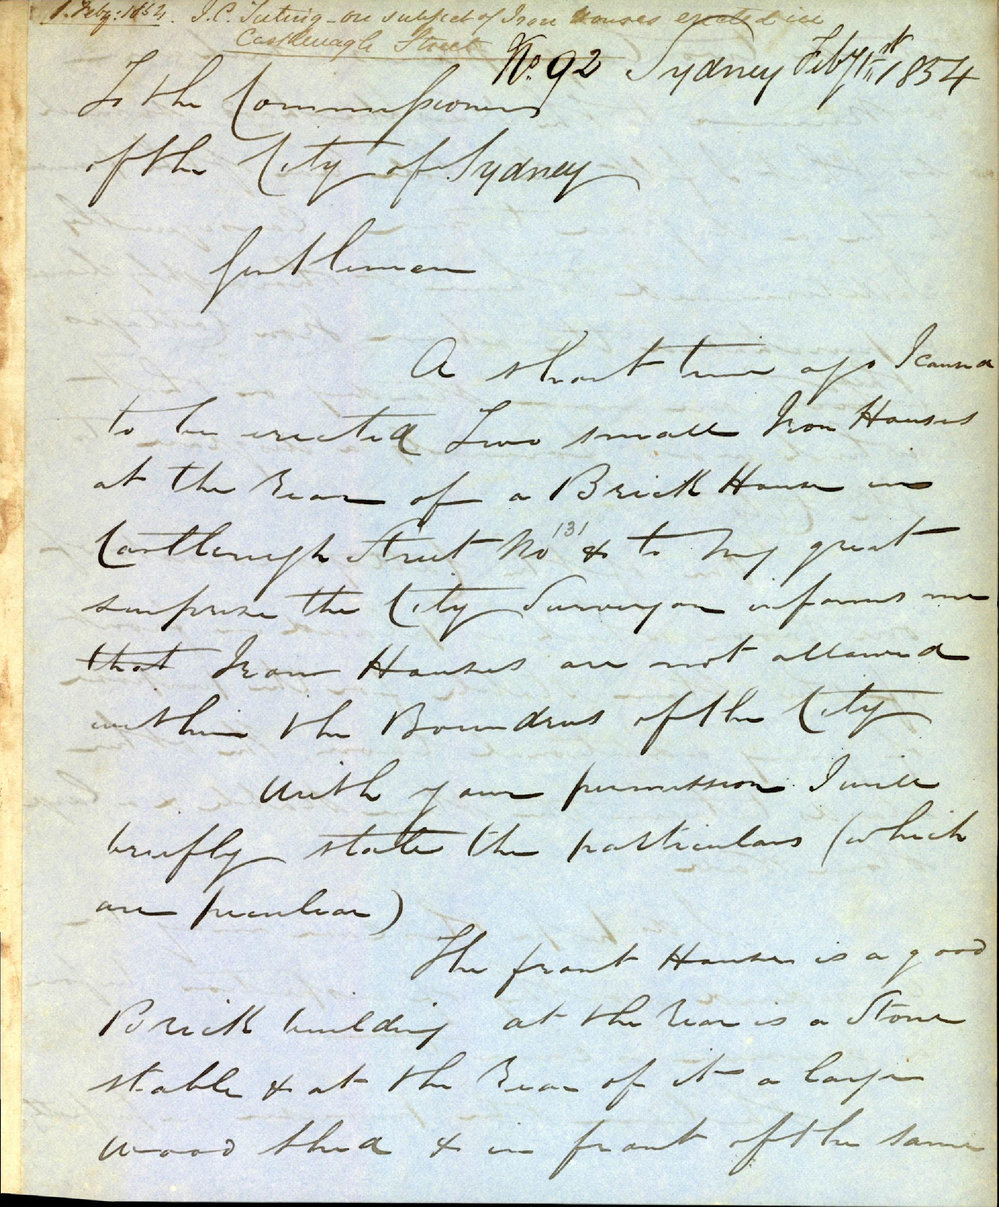 1. Feby: 1854. J. C. Tuting - on subject of Iron Houses erected in
Castlereagh Street
No. 92 Sydney Feby 1st 1854
To the Commissioners
of the City of Sydney
Gentlemen
A short time ago I caused
to be erected Two small Iron Houses
at the Rear of a Brick House in
Castlereagh Street No 131 & to my great
surprise the City Surveyor informs me
that Iron Houses are not allowed
within the Boundrus of the City
With your permission I will
briefly state the particulars (which
are peculiar)
The front House is a good
Brick building at the Rear is a Stone
stable & at the Rear of it a large
wood shed & in front of the same